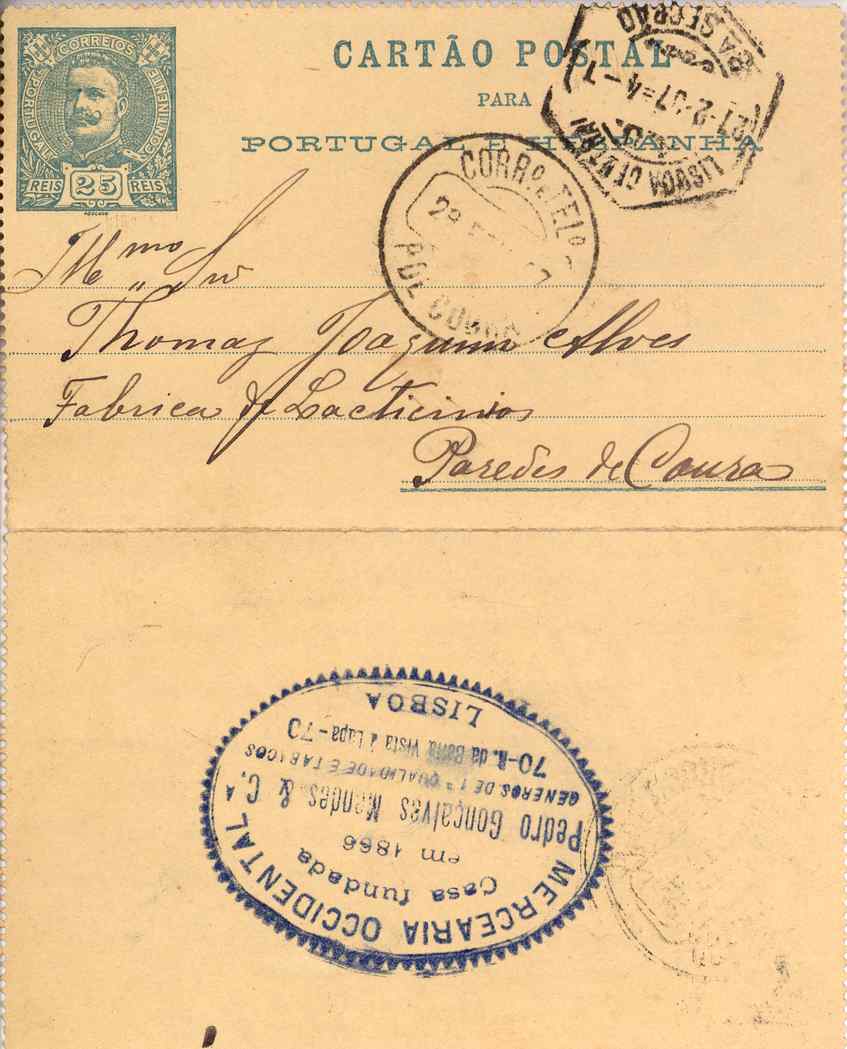 CORREIOS
PORTUGAL
CONTINENTE
REIS 25 REIS
CARTÃO POSTAL
PARA
PORTUGAL E HESPANHA
LISBOA CENTRAL
27-2-07=4-T
CORR.º TEL.º
P. DE COURA
Illmo Snr
Thomaz Joaquim Alves
Fabrica de Lacticinios
Paredes de Coura
MERCEARIA OCCIDENTAL
Casa fundada
em 1866
Pedro Gonçalves Mendes & C.ª
GENEROS DE 1ª QUALIDADE E TABACOS
70-R. da Bôna Vista á Lapa-70
LISBOA